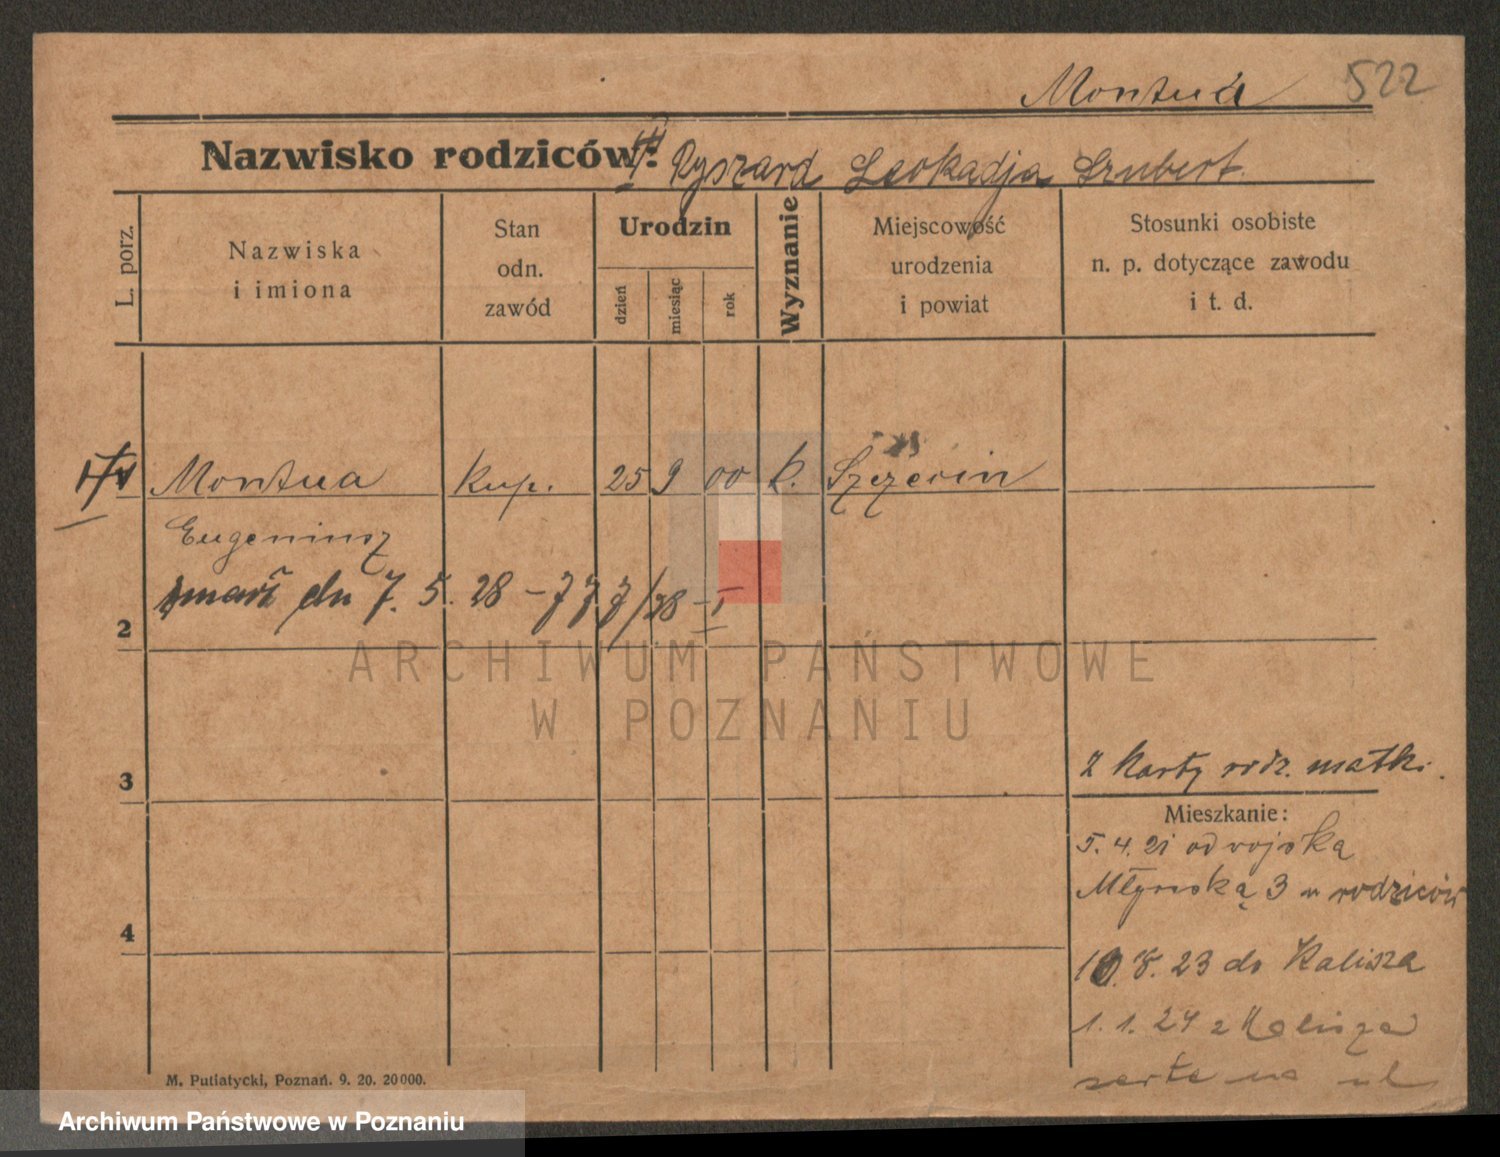 Montua 522
Nazwisko rodziców: Ryszard Leokadja Szubert
L. porz.
Nazwiska
i imiona
Stan
odn.
zawód
Urodzin
dzień
miesiąc
rok
Wyznanie
Miejscowość
urodzenia
i powiat
Stosunki osobiste
n. p. dotyczące zawodu
i t. d.
Montua Kup. 25 9 00 k. Szczecin
Eugeniusz
zmarł dn 7. 5. 28 – 777/28 – I
2
3
4
z karty rodz. matki.
Mieszkanie:
5. 4. 21 od wojska
Młyńska 3 u rodziców
10. 8. 23 do Kalisza
1. 1. 24 z Kalisza
na ul
M. Putiatycki, Poznań. 9. 20. 20000.
ARCHIWUM PAŃSTWOWE
W POZNANIU
Archiwum Państwowe w Poznaniu